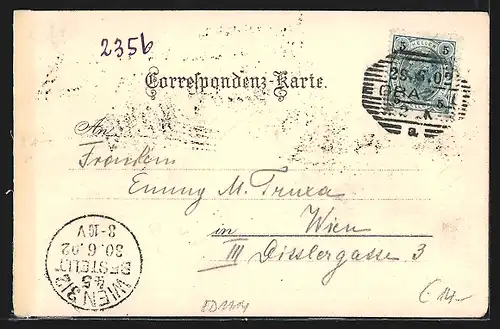 2356
5 HELLER 5
28.6.02
GRAZ
a
Correspondenz-Karte.
An
Fräulein
Emmy M. Truxa
in Wien
III Disslergasse 3
WIEN 3/2
45
BESTELLT
30.6.02
8-10V